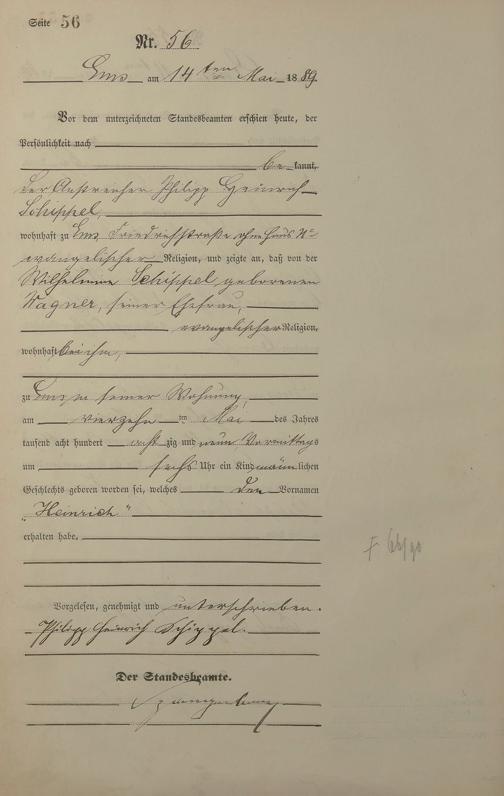 Seite 56
Nr. 56
Ems am 14ten Mai 1889
Vor dem unterzeichneten Standesbeamten erschien heute, der
Persönlichkeit nach
be kannt,
der Anstreicher Philipp Heinrich
Schippel,
wohnhaft zu Ems Friedrichstraße ohne Haus No
evangelischer Religion, und zeigte an, daß von der
Wilhelmine Schippel, geborenen
Wagner, seiner Ehefrau,
evangelischer Religion,
wohnhaft bei ihm,
zu Ems in seiner Wohnung,
am vierzehnten Mai des Jahres
tausend acht hundert achtzig und neun Vormittags
um sechs Uhr ein Kind männlichen
Geschlechts geboren worden sei, welches den Vornamen
„Heinrich"
erhalten habe.
Vorgelesen, genehmigt und unterschrieben.
Philipp Heinrich Schippel.
Der Standesbeamte.